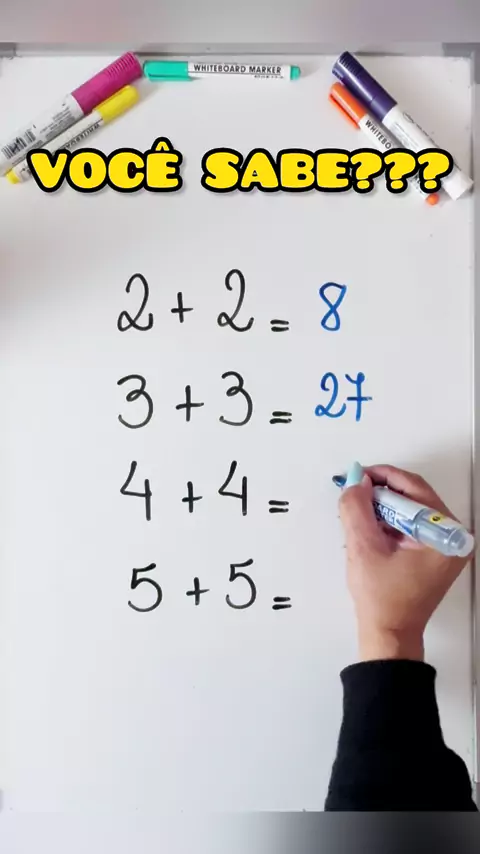 WHITEBOARD MARKER
VOCÊ SABE???
2 + 2 = 8
3 + 3 = 27
4 + 4 =
5 + 5 =